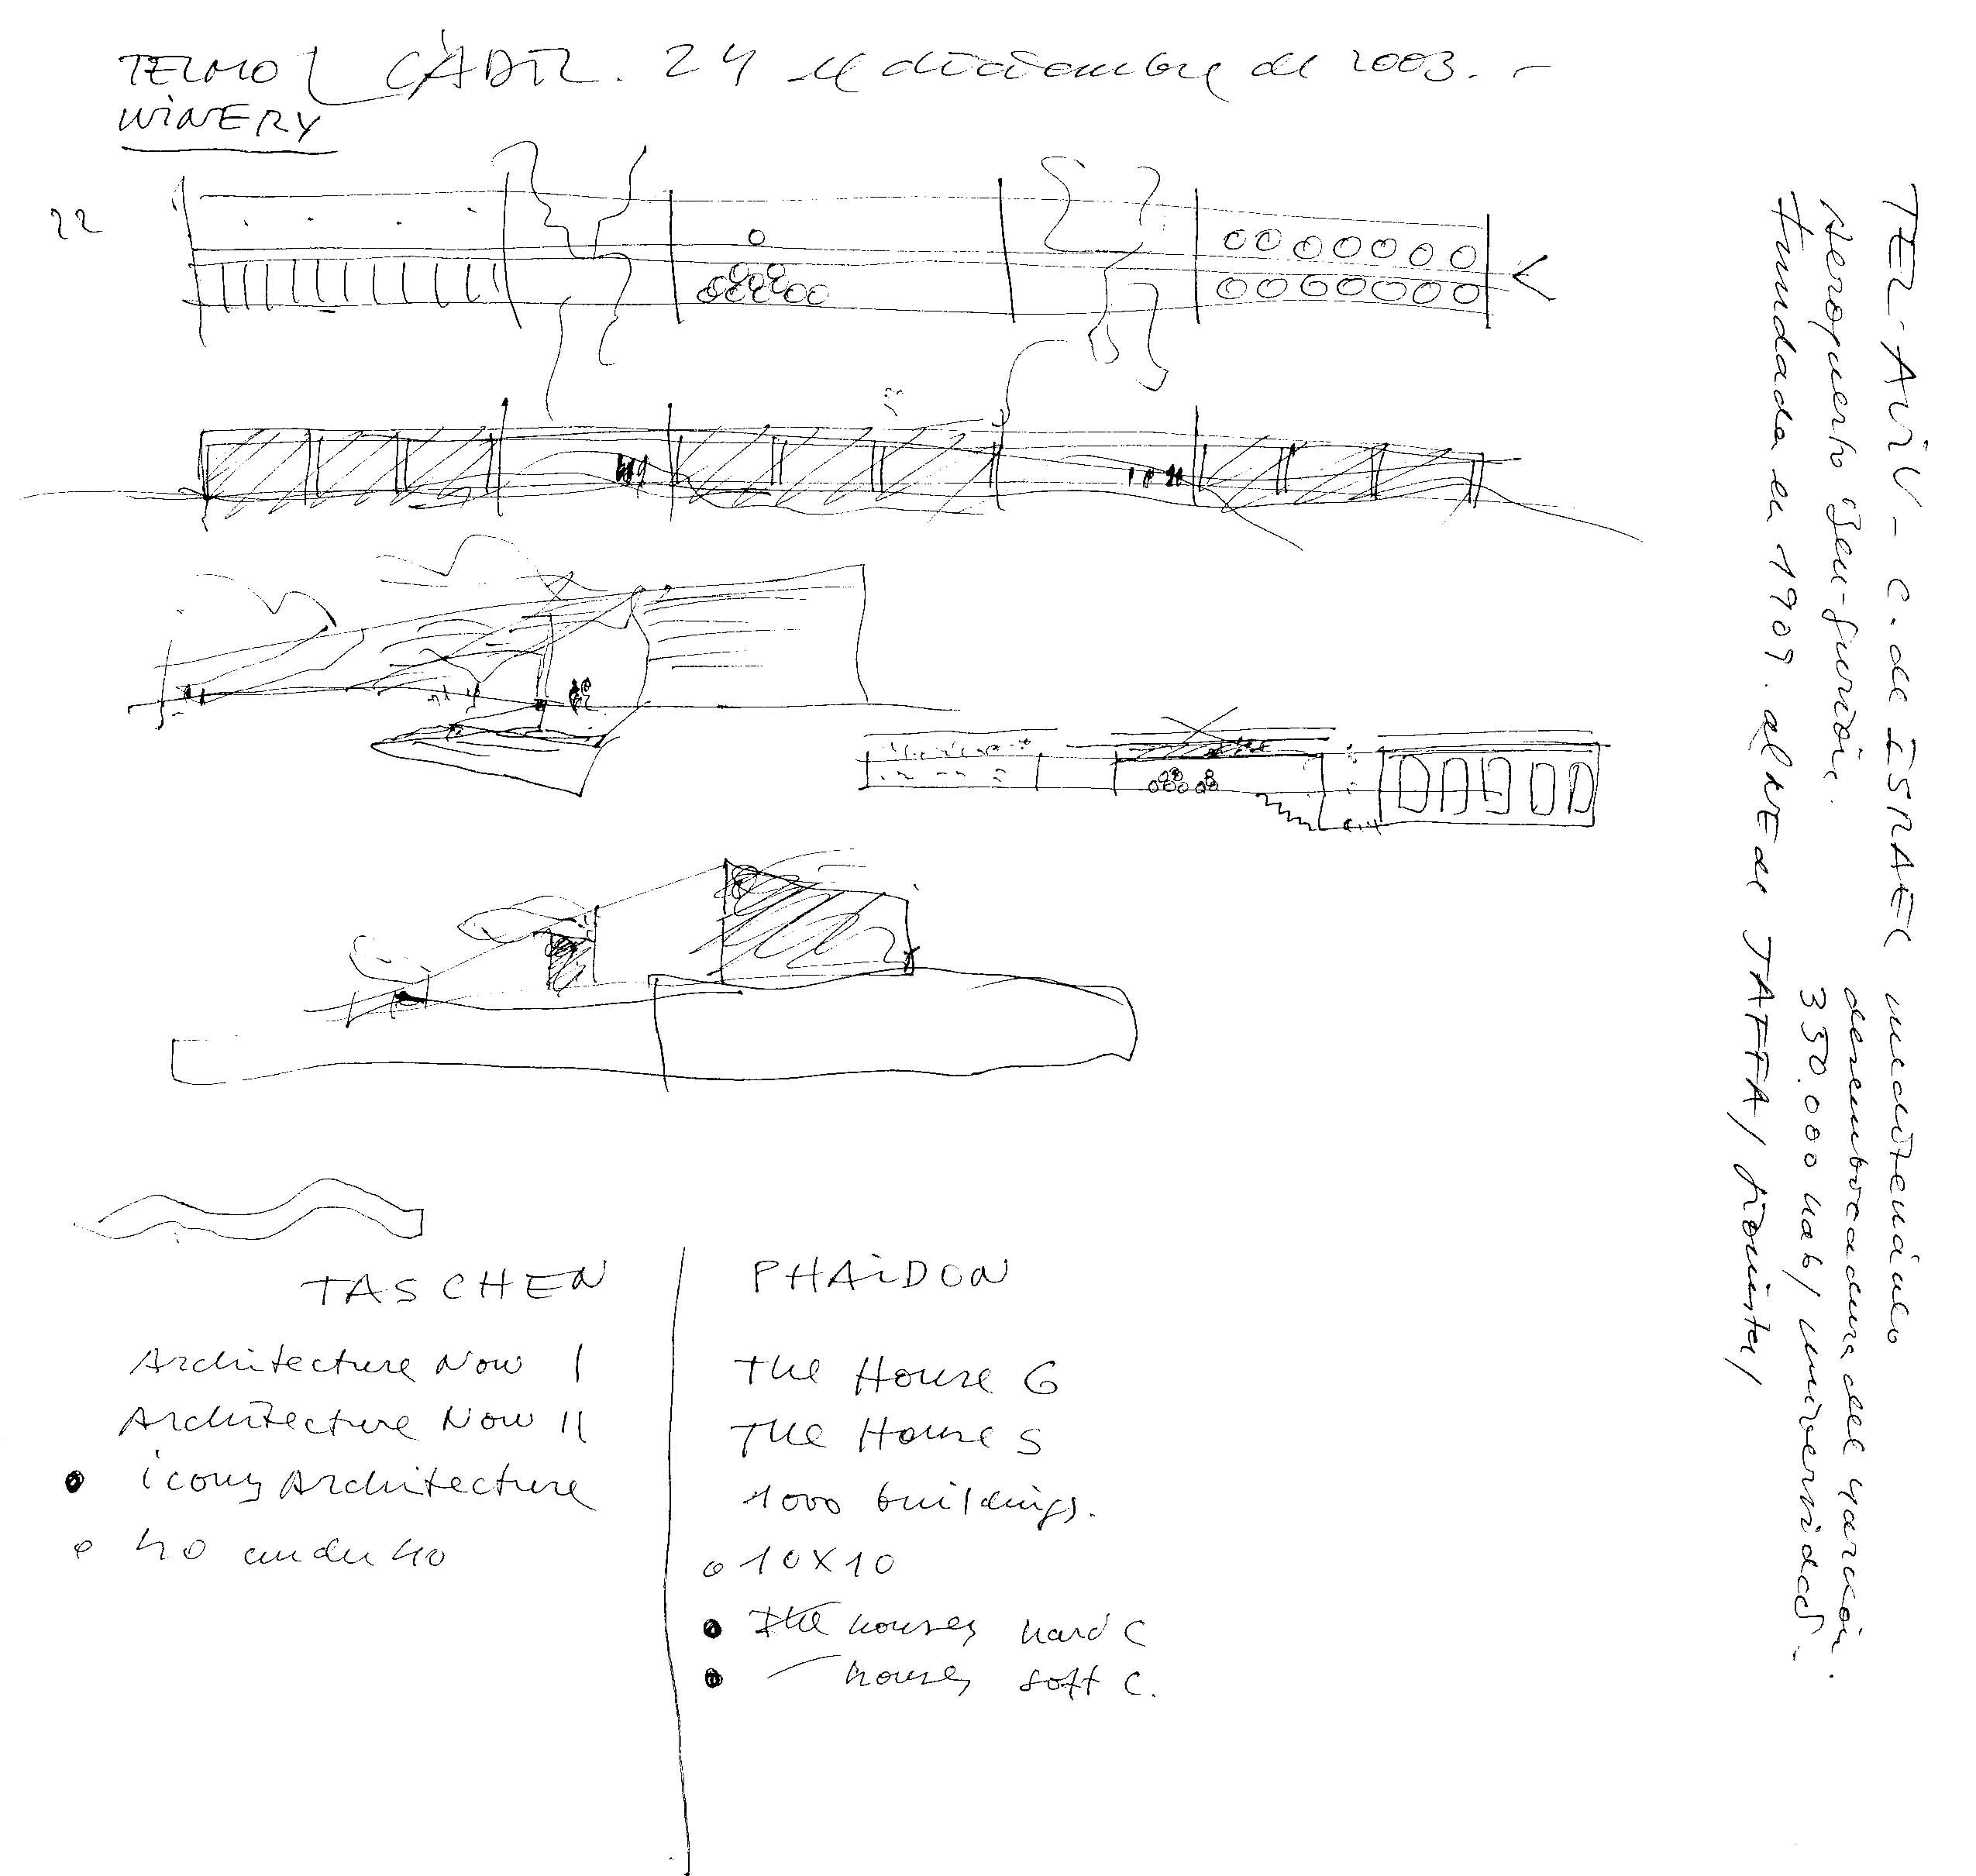 TELMO CÁDIZ. 24 de diciembre de 2003. -
WINERY
22
TEL·AVIV - C. de ISRAEL mediterráneo
Aeropuerto Ben-gurión. desembocadura del Yarkón.
fundada en 1909. al NE de JAFFA / 350.000 hab / universidad.
TASCHEN
Architecture Now I
Architecture Now II
icons Architecture
40 under 40
PHAIDON
THE House G
THE House S
1000 buildings.
10x10
The houses hard C
houses soft C.